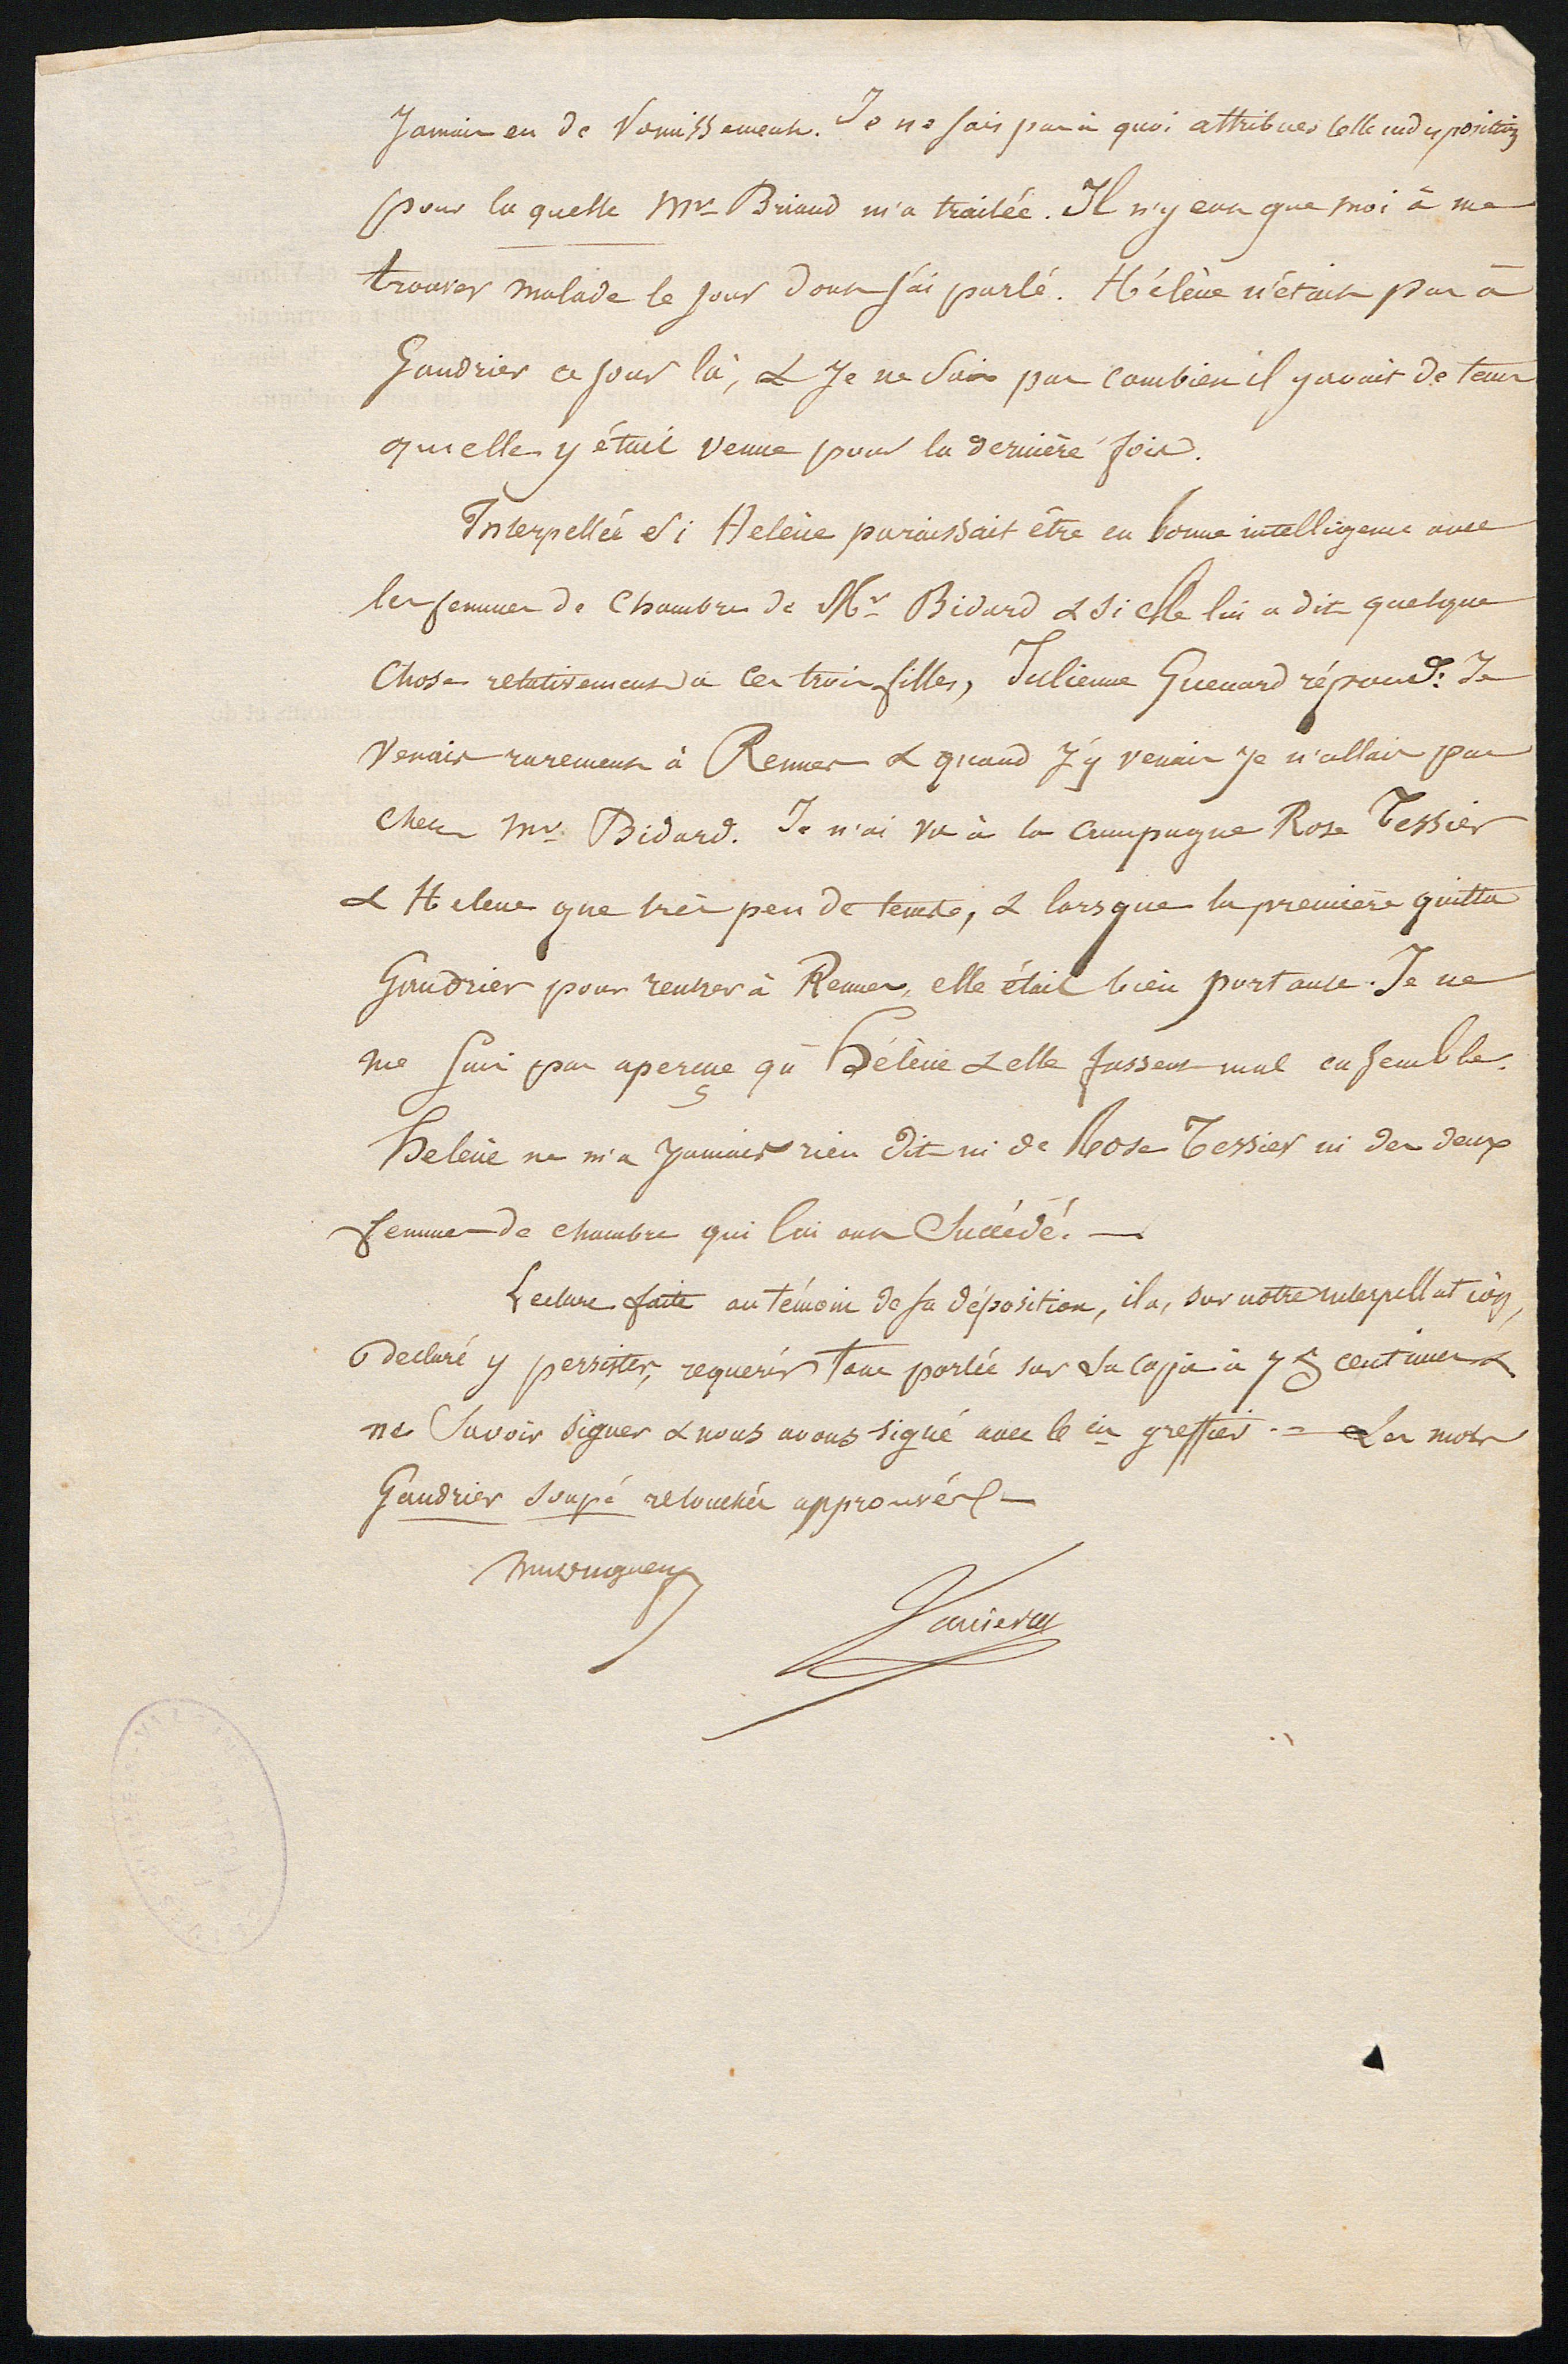 Jamais eu de Vomissements. Je ne sais pas à quoi attribuer cette indisposition
pour la quelle Mr Briand m'a traitée. Il n'y eut que moi à me
trouver malade le jour dont j'ai parlé. Hélène n'était pas à
Gaudrier ce jour là, & Je ne sais pas combien il y avait de tems
qu'elle y était venue pour la dernière fois.
Interpellée si Helène paraissait être en bonne intelligence avec
les femmes de Chambre de Mr Bidard & si elle lui a dit quelque
Chose relativement à ces trois filles, Julienne Guenard répond: Je
Venais rarement à Rennes & quand J'y venais Je n'allais pas
chez Mr Bidard. Je n'ai vu à la campagne Rose Tessier
& Helene que très peu de tems, & lorsque la première quitta
Gaudrier pour rentrer à Rennes, elle était bien portante. Je ne
me suis pas aperçue qu'Hélène & elle fussent mal ensemble.
Helène ne m'a Jamais rien dit ni de Rose Tessier ni des deux
femmes de chambre qui lui ont Succédé.
Lecture faite au témoin de sa déposition, il a, sur notre interpellation,
declaré y persister, requérir Taxe portée sur sa copie à 75 centimes &
ne Savoir signer & nous avons signé avec le cis greffier = Les mots
Gaudrier soupé retouchés approuvés